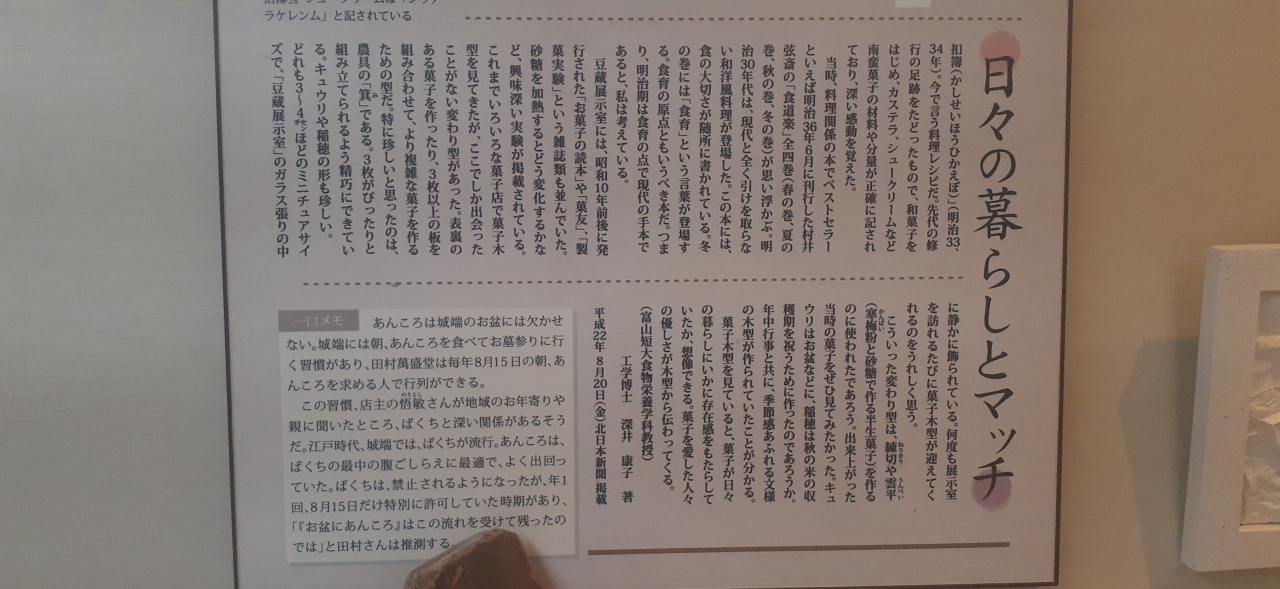 ラケレンム」と記されている
日々の暮らしとマッチ
扣簿(かしせいほうひかえぼ)」(明治33、
34年)。今で言う料理レシピだ。先代の修
行の足跡をたどったもので、和菓子を
はじめ、カステラ、シュークリームなど
南蛮菓子の材料や分量が正確に記され
ており、深い感動を覚えた。
当時、料理関係の本でベストセラー
といえば明治36年6月に刊行した村井
弦斎の「食道楽」全四巻(春の巻、夏の
巻、秋の巻、冬の巻)が思い浮かぶ。明
治30年代は、現代と全く引けを取らな
い和洋風料理が登場した。この本には、
食の大切さが随所に書かれている。冬
の巻には「食育」という言葉が登場す
る。食育の原点ともいうべき本だ。つま
り、明治期は食育の点で現代の手本で
あると、私は考えている。
豆蔵展示室には、昭和10年前後に発
行された「お菓子の読本」や「菓友」、「製
菓実験」という雑誌類も並んでいた。
砂糖を加熱するとどう変化するかな
ど、興味深い実験が掲載されている。
これまでいろいろな菓子店で菓子木
型を見てきたが、ここでしか出会った
ことがない変わり型があった。表裏の
ある菓子を作ったり、3枚以上の板を
組み合わせて、より複雑な菓子を作る
ための型だ。特に珍しいと思ったのは、
農具の「箕」である。3枚がぴったりと
組み立てられるよう精巧にできてい
る。キュウリや稲穂の形も珍しい。
どれも3〜4㌢ほどのミニチュアサイ
ズで、「豆蔵展示室」のガラス張りの中
に静かに飾られている。何度も展示室
を訪れるたびに菓子木型が迎えてく
れるのをうれしく思う。
こういった変わり型は、練切や雲平
(寒梅粉と砂糖で作る半生菓子)を作る
のに使われたであろう。出来上がった
当時の菓子をぜひ見てみたかった。キュ
ウリはお盆などに、稲穂は秋の米の収
穫期を祝うために作ったのであろうか。
年中行事と共に、季節感あふれる文様
の木型が作られていたことが分かる。
菓子木型を見ていると、菓子が日々
の暮らしにいかに存在感をもたらして
いたか、想像できる。菓子を愛した人々
の優しさが木型から伝わってくる。
(富山短大食物栄養学科教授)
工学博士 深井 康子 著
平成22年8月20日(金)北日本新聞掲載
一口メモ
あんころは城端のお盆には欠かせ
ない。城端には朝、あんころを食べてお墓参りに行
く習慣があり、田村萬盛堂は毎年8月15日の朝、あ
んころを求める人で行列ができる。
この習慣、店主の悟敏さんが地域のお年寄りや
親に聞いたところ、ばくちと深い関係があるそう
だ。江戸時代、城端では、ばくちが流行。あんころは、
ばくちの最中の腹ごしらえに最適で、よく出回っ
ていた。ばくちは、禁止されるようになったが、年1
回、8月15日だけ特別に許可していた時期があり、
「『お盆にあんころ』はこの流れを受けて残ったの
では」と田村さんは推測する。